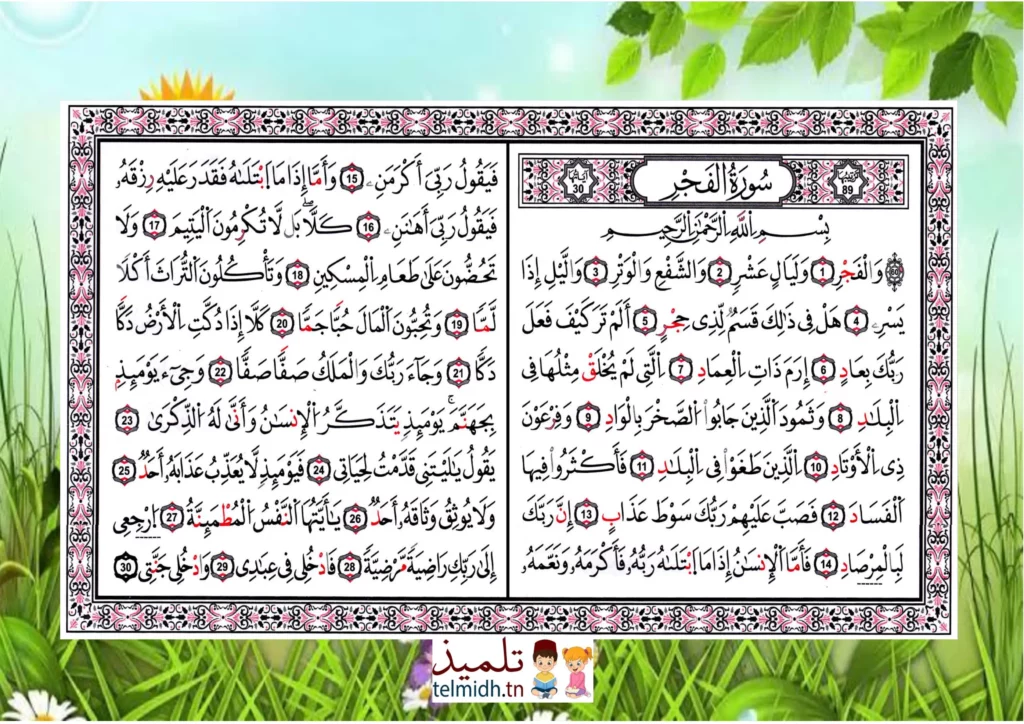 ترتيبها 89
سُورَةُ الْفَجْرِ
آياتها 30
بِسْمِ اِللَّهِ اِلرَّحْمَٰنِ اِلرَّحِيمِ
60 وَالْفَجْرِ 1 وَلَيَالٍ عَشْرٖ 2 وَالشَّفْعِ وَالْوَتْرِ 3 وَاليْلِ إِذَا
يَسْرِۦ 4 هَلْ فِى ذَٰلِكَ قَسَمٞ لِّذِى حِجْرٍ 5 أَلَمْ تَرَ كَيْفَ فَعَلَ
رَبُّكَ بِعَادٍ 6 إِرَمَ ذَاتِ اِلْعِمَادِ 7 اِلَّتِى لَمْ يُخْلَقْ مِثْلُهَا فِى
اِلْبِلَٰدِ 8 وَثَمُودَ اَلَّذِينَ جَابُوا اُلصَّخْرَ بِالْوَادِ 9 وَفِرْعَوْنَ
ذِى اِلْأَوْتَادِ 10 اِلَّذِينَ طَغَوْا فِى اِلْبِلَٰدِ 11 فَأَكْثَرُوا فِيهَا
اَلْفَسَادَ 12 فَصَبَّ عَلَيْهِمْ رَبُّكَ سَوْطَ عَذَابٍ 13 إِنَّ رَبَّكَ
لَبِالْمِرْصَادِ 14 فَأَمَّا اَلْإِنسَٰنُ إِذَا مَا اَبْتَلَىٰهُ رَبُّهُۥ فَأَكْرَمَهُۥ وَنَعَّمَهُۥ
فَيَقُولُ رَبِّىَ أَكْرَمَنِۦ 15 وَأَمَّا إِذَا مَا اَبْتَلَىٰهُ فَقَدَرَ عَلَيْهِ رِزْقَهُۥ
فَيَقُولُ رَبِّىَ أَهَٰنَنِۦ 16 كَلَّا بَل لَّا تُكْرِمُونَ اَلْيَتِيمَ 17 وَلَا
تَحُضُّونَ عَلَىٰ طَعَامِ اِلْمِسْكِينِ 18 وَتَأْكُلُونَ اَلتُّرَاثَ أَكْلًا
لَّمًّا 19 وَتُحِبُّونَ اَلْمَالَ حُبًّا جَمًّا 20 كَلَّا إِذَا دُكَّتِ اِلْأَرْضُ دَكًّا
دَكًّا 21 وَجَاءَ رَبُّكَ وَالْمَلَكُ صَفًّا صَفًّا 22 وَجِىءَ يَوْمَئِذٍ
بِجَهَنَّمَ يَوْمَئِذٍ يَتَذَكَّرُ اُلْإِنسَٰنُ وَأَنَّىٰ لَهُ اُلذِّكْرَىٰ 23
يَقُولُ يَٰلَيْتَنِى قَدَّمْتُ لِحَيَاتِى 24 فَيَوْمَئِذٍ لَّا يُعَذِّبُ عَذَابَهُۥ أَحَدٌ 25
وَلَا يُوثِقُ وَثَاقَهُۥ أَحَدٌ 26 يَٰأَيَّتُهَا اَلنَّفْسُ اُلْمُطْمَئِنَّةُ 27 اُرْجِعِى
إِلَىٰ رَبِّكِ رَاضِيَةً مَّرْضِيَّةً 28 فَادْخُلِى فِى عِبَٰدِى 29 وَادْخُلِى جَنَّتِى 30
تلميذ
telmidh.tn